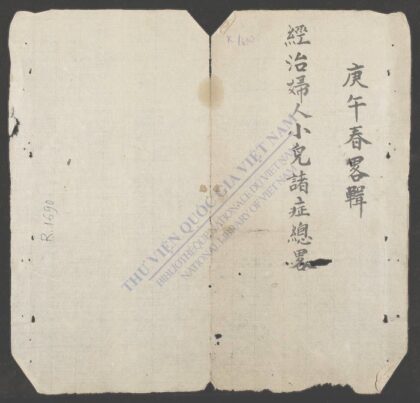 庚午春畧輯
經治婦人小兒諸症總畧
R.1690
THƯ VIỆN QUỐC GIA VIỆT NAM
BIBLIOTHÈQUE NATIONALE DU VIETNAM
NATIONAL LIBRARY OF VIETNAM